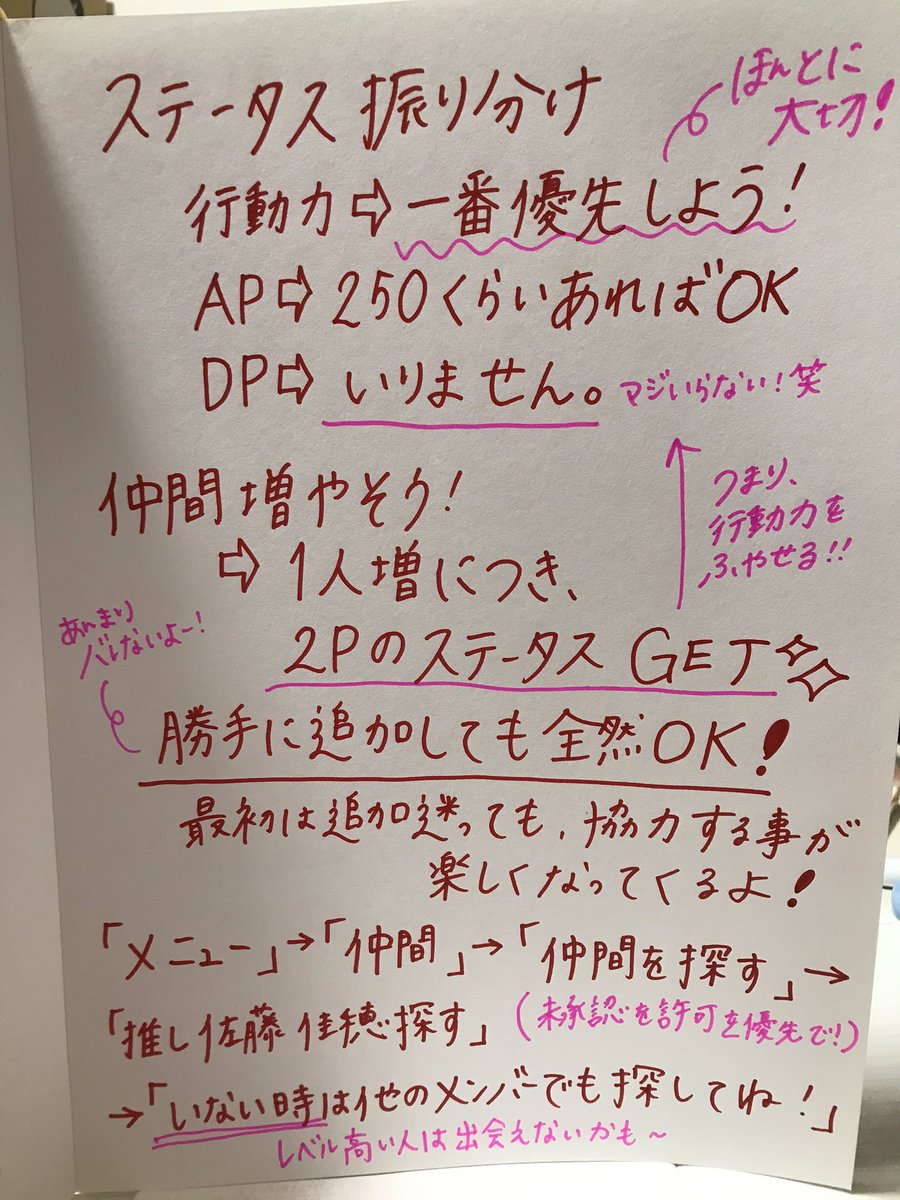 ステータス 振り分け
ほんとに
大切!
行動力⇨一番優先しよう!
AP⇨250くらいあればOK
DP⇨いりません。
マジいらない!笑
つまり、
行動力を
ふやせる!!
仲間増やそう!
⇨1人増につき、
2Pのステータス GET
あんまり
バレないよー!
勝手に追加しても全然OK!
最初は追加迷っても、協力する事が
楽しくなってくるよ!
「メニュー」→「仲間」→「仲間を探す」→
「推し佐藤佳穂探す」
(未承認を許可を優先で!)
→「いない時は他のメンバーでも探してね!」
レベル高い人は出会えないかも~